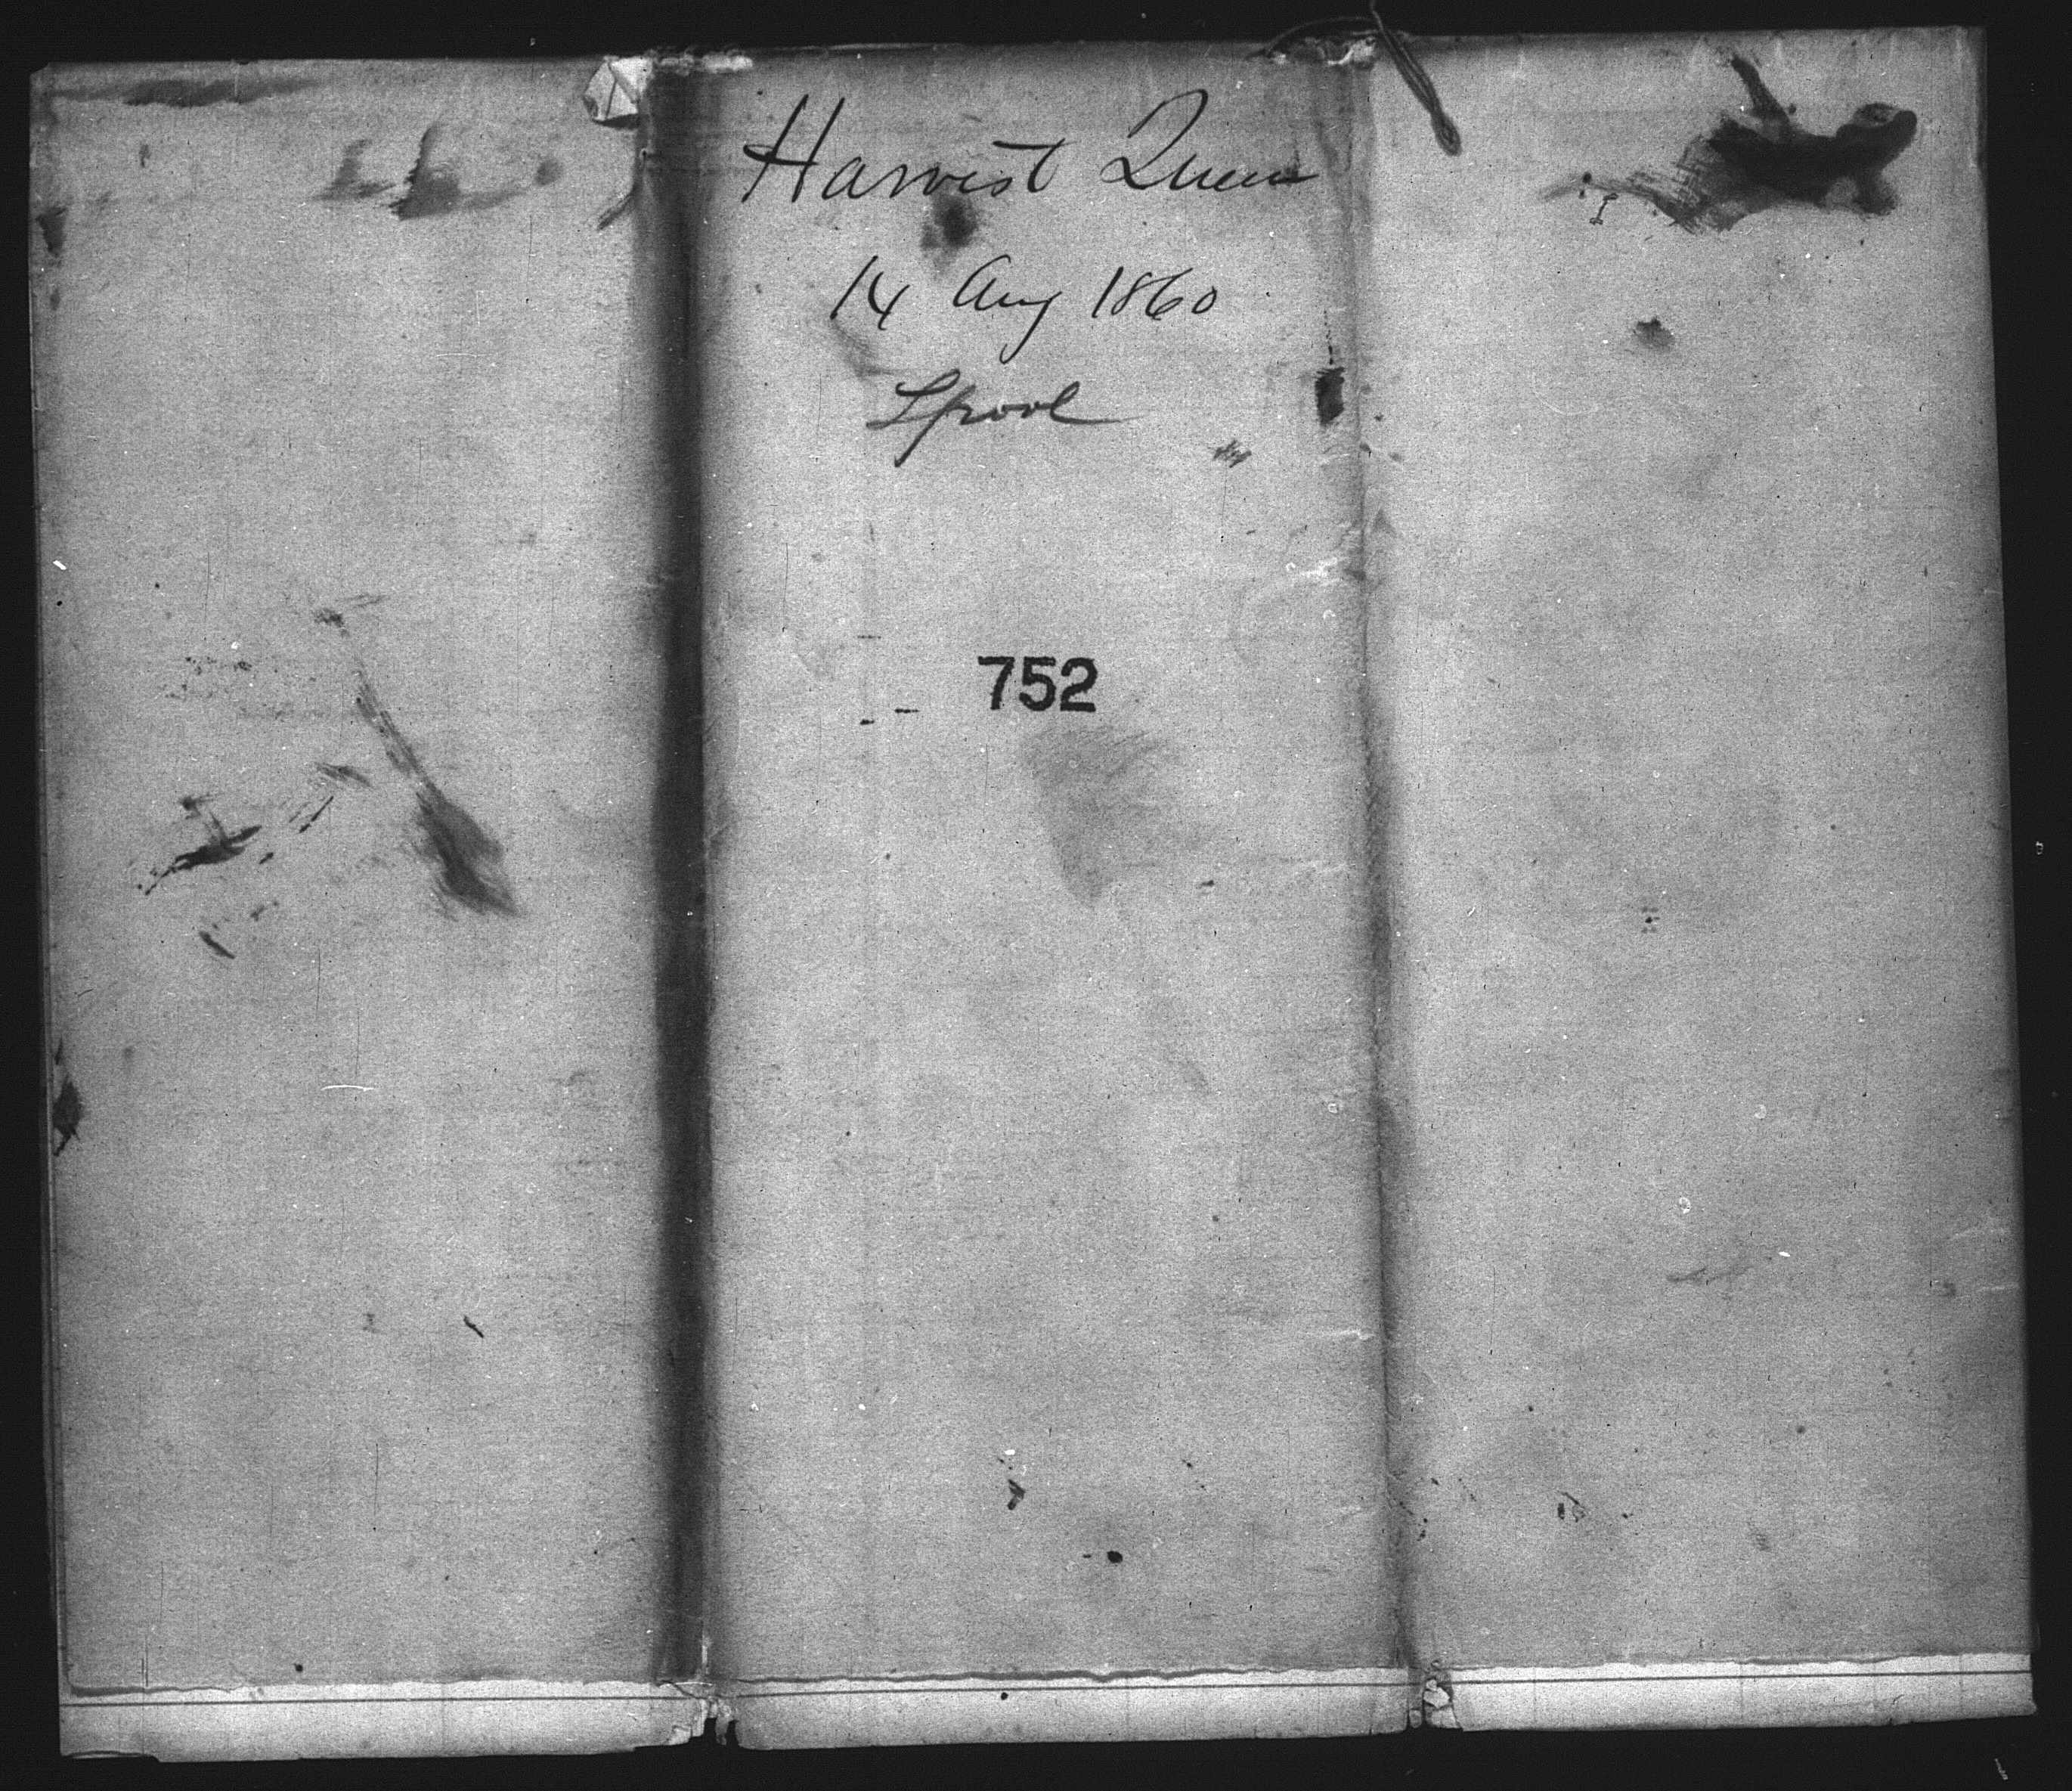 Harvest Queen
14 Aug 1860
Lpool
752